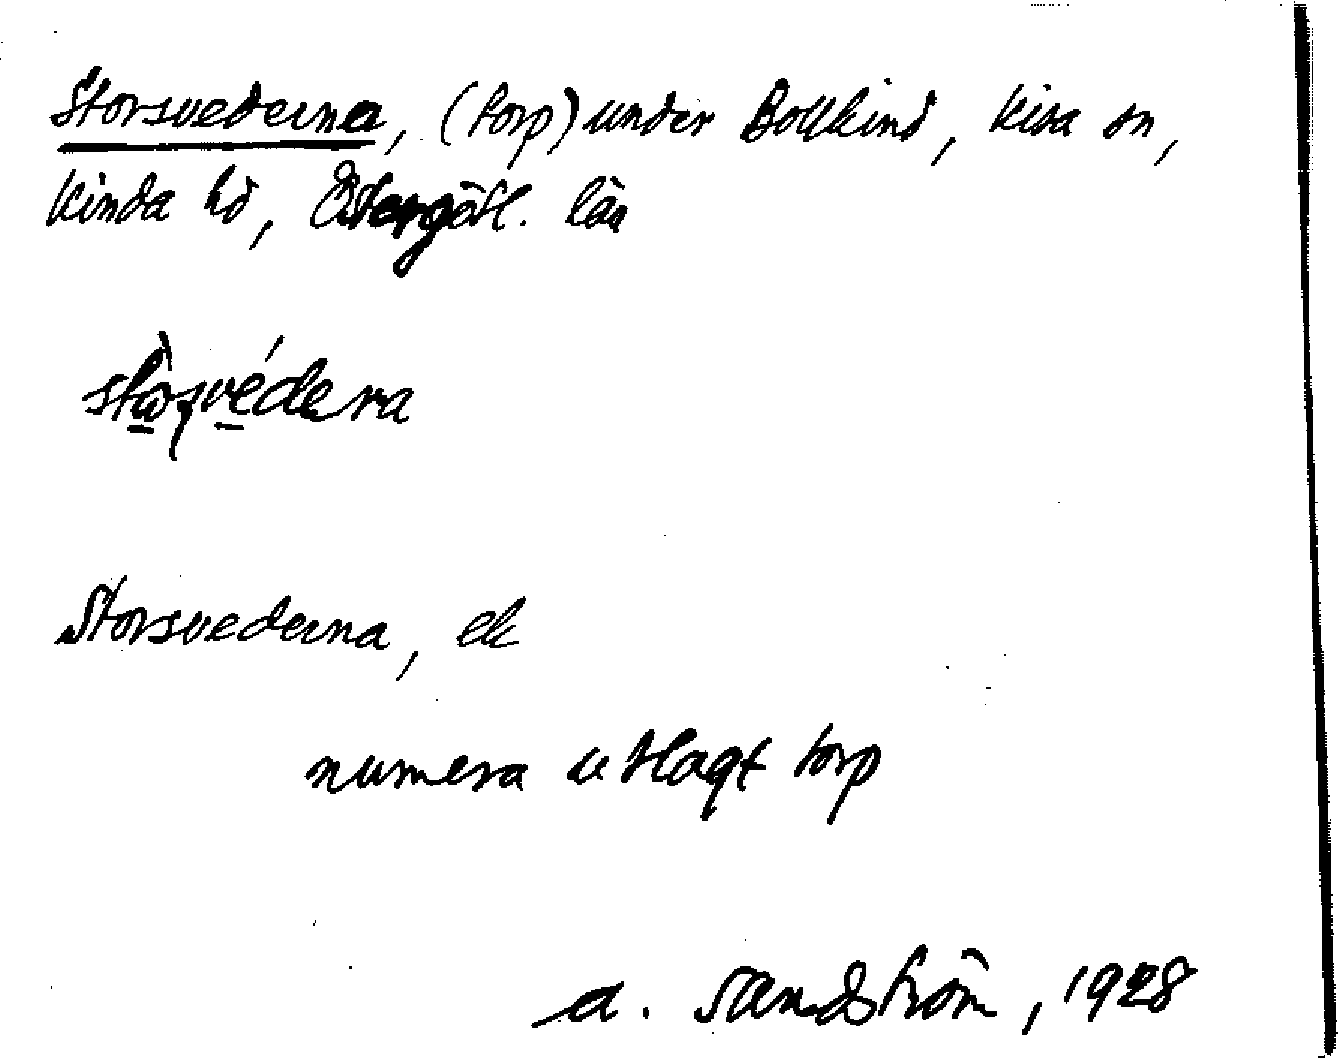 Storsvederna, (torp) under Bollkind, Kisa sn,
Kinda hd, Östergötl. län
Storsvederna, ek
numera utlagt torp
A. Sandström, 1928